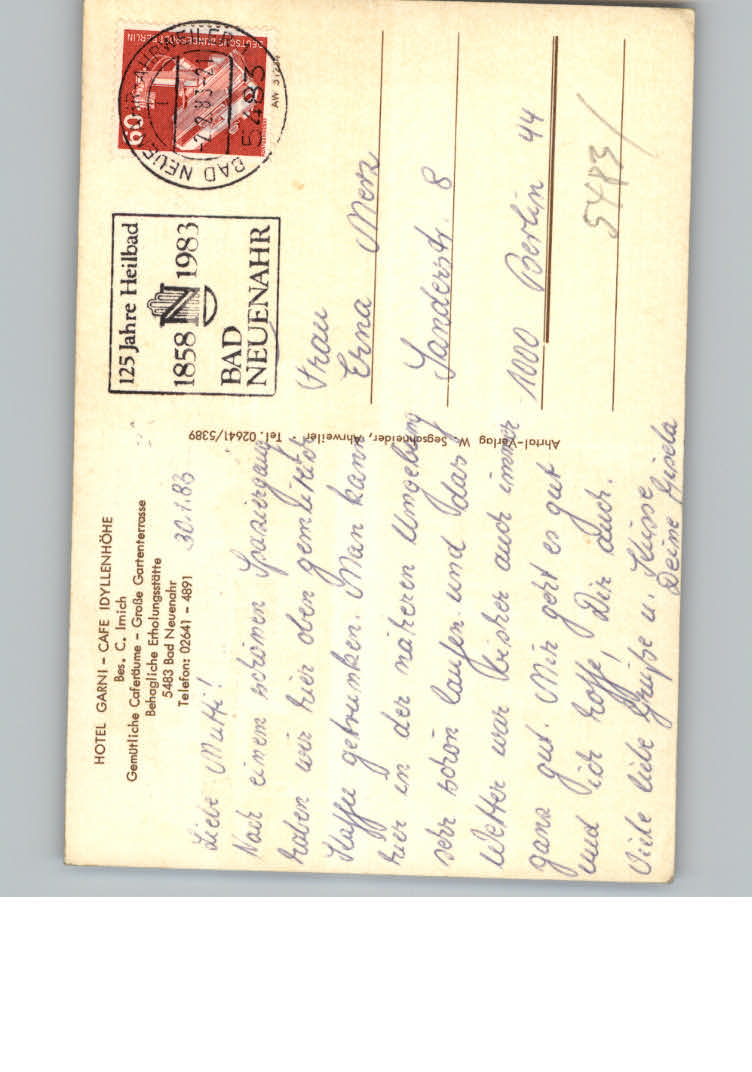 HOTEL GARNI - CAFE IDYLLENHÖHE
Bes. C. Imich
Gemütliche Caferäume - Große Gartenterrasse
Behagliche Erholungsstätte
5483 Bad Neuenahr
Telefon: 02641 - 4891
30.1.83
Liebe Mutti!
Nach einem schönen Spaziergang
haben wir hier oben gemütlich
Kaffee getrunken. Man kann
hier in der näheren Umgebung
sehr schön laufen und das
Wetter war bisher auch immer
ganz gut. Mir geht es gut
und ich hoffe Dir auch.
Viele liebe Grüße u. Küsse
Deine Gisela
Ahrtal-Verlag W. Segschneider, Ahrweiler · Tel. 02641/5389
125 Jahre Heilbad
1858 N 1983
BAD
NEUENAHR
DEUTSCHE BUNDESPOST BERLIN
60
BAD NEUENAHR-AHRWEILER 1
-2.2.83-21
5483
AW 31
Frau
Erna Merz
Sanderstr. 8
1000 Berlin 44
5483/